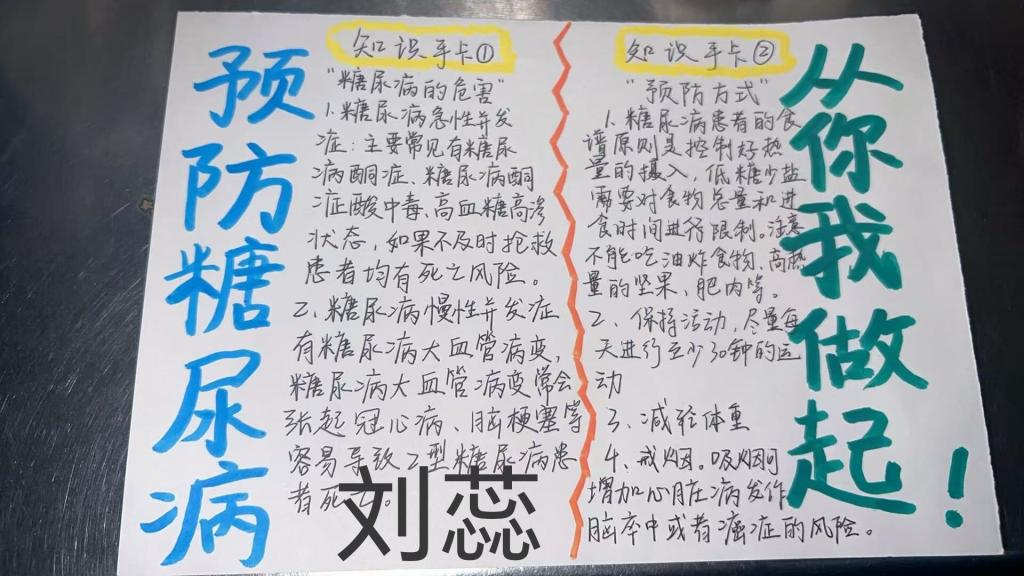 预防糖尿病
知识手卡①
"糖尿病的危害"
1.糖尿病急性并发
症：主要常见有糖尿
病酮症、糖尿病酮
症酸中毒、高血糖高渗
状态，如果不及时抢救
患者均有死亡风险。
2、糖尿病慢性并发症
有糖尿病大血管病变，
糖尿病大血管病变常会
张起冠心病、脑梗塞等
容易导致2型糖尿病患
者死
刘蕊
知识手卡②
"预防方式"
1、糖尿病患者的食
谱原则是控制好热
量的摄入，低糖少盐
需要对食物总量和进
食时间进行限制。注意
不能吃油炸食物、高热
量的坚果、肥肉等。
2、保持活动，尽量每
天进行至少30钟的运
动
3、减轻体重
4、戒烟。吸烟可
增加心脏病发作
脑卒中或者癌症的风险。
从你我做起！